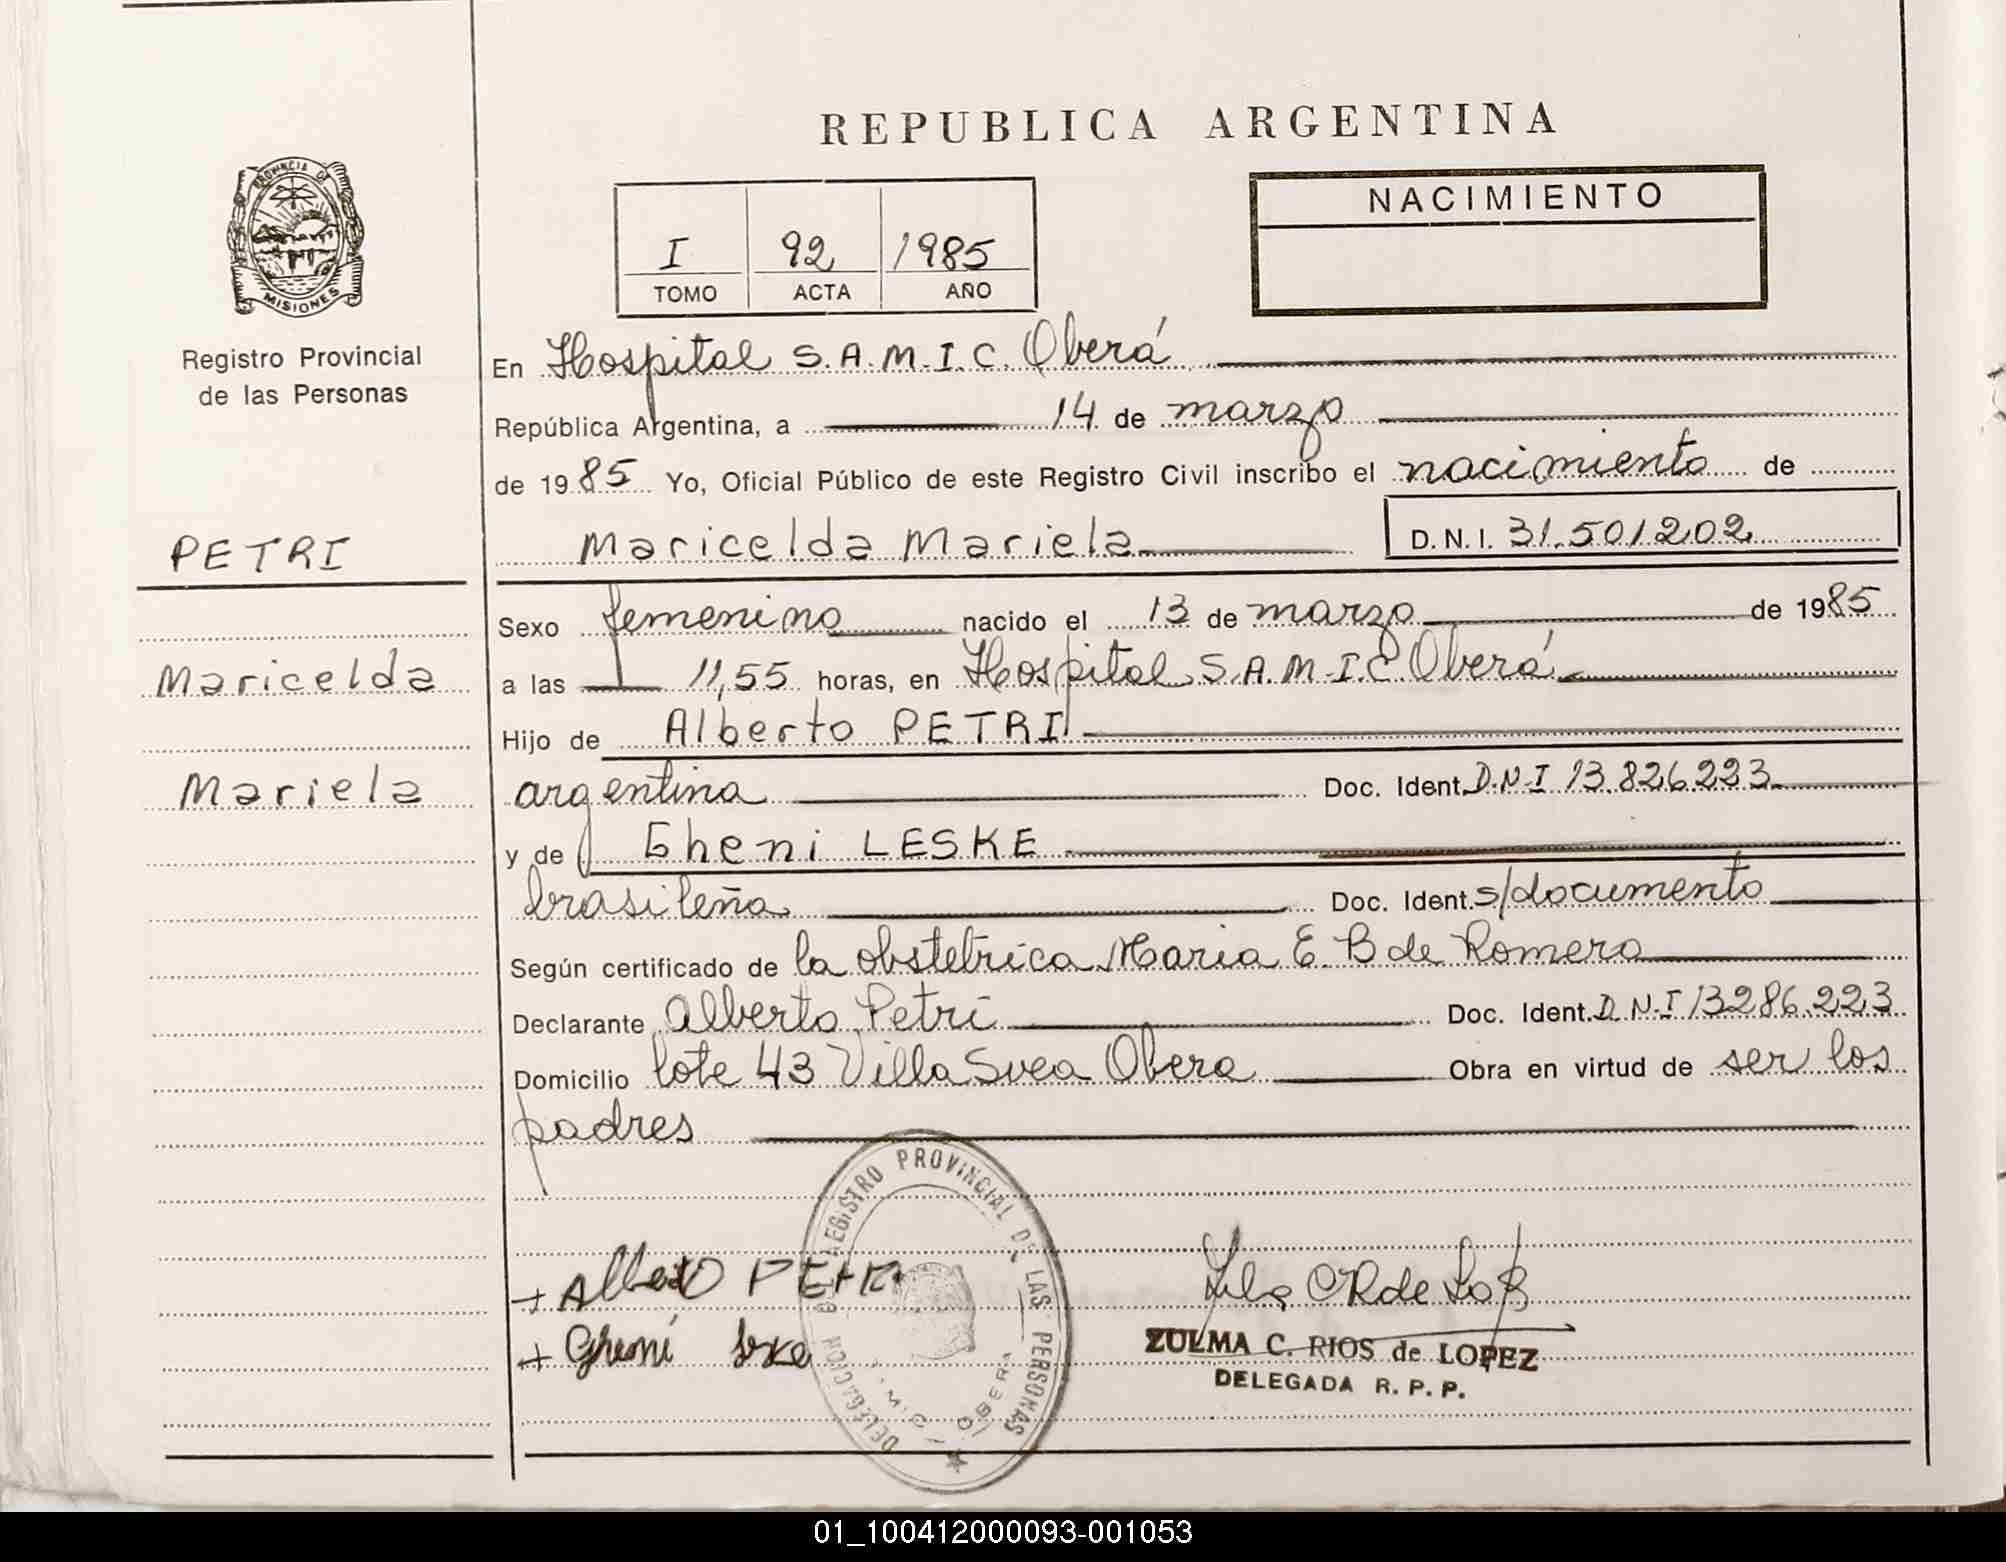 REPUBLICA ARGENTINA
PROVINCIA DE
MISIONES
Registro Provincial
de las Personas
I 92 1985
TOMO ACTA AÑO
NACIMIENTO
En Hospital S.A.M.I.C. Oberá
República Argentina, a 14 de marzo
de 1985 Yo, Oficial Público de este Registro Civil inscribo el nacimiento de
PETRI
Maricelda Mariela D.N.I. 31.501202
Sexo femenino nacido el 13 de marzo de 1985
Maricelda
a las 11,55 horas, en Hospital S.A.M.I.C. Oberá
Hijo de Alberto PETRI
Mariela
argentina Doc. Ident. D.N.I 13.826.223
y de Gheni LESKE
brasileña Doc. Ident. s/documento
Según certificado de la obstetrica Maria E. B de Romero
Declarante Alberto Petri Doc. Ident. D.N.I 13286.223
Domicilio lote 43 Villa Svea Obera Obra en virtud de ser los
padres
DELEGACION REGISTRO PROVINCIAL DE LAS PERSONAS
OBERA
+ Alberto PEtRi
+ Gheni
ZULMA C. RIOS de LOPEZ
DELEGADA R. P. P.
01_100412000093-001053